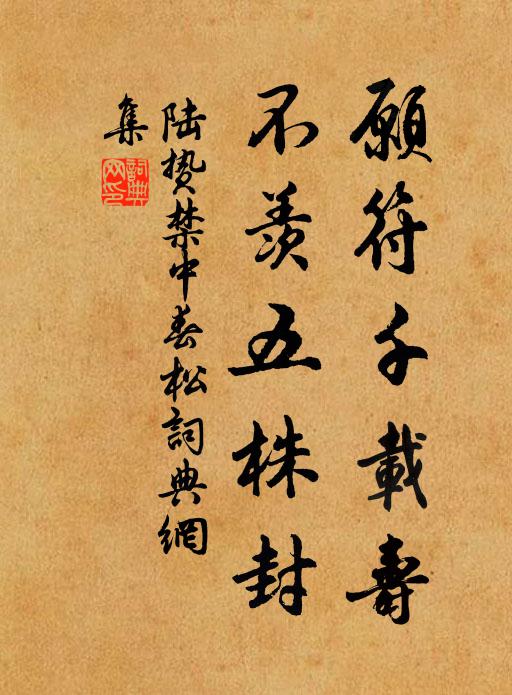 願符千載壽
不羨五株封
陆贽禁中春松詞典網
集
詞典網印